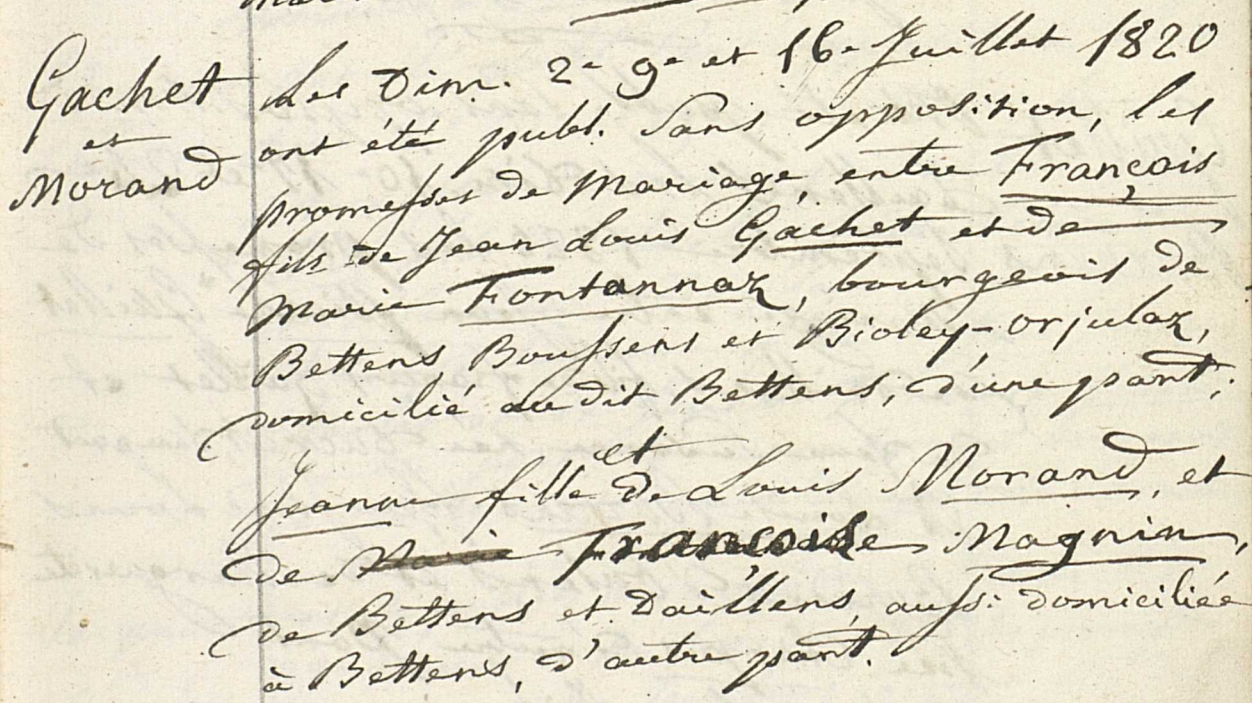 Gachet
et
Morand
Les Dim. 2e 9e et 16e Juillet 1820
ont été publ. sans opposition, les
promesses de Mariage entre François
fils de Jean Louis Gachet et de
Marie Fontannaz, bourgeois de
Bettens Boussens et Bioley-orjulaz,
domicilié au dit Bettens, d'une part;
et
Jeanne fille de Louis Morand, et
de Marie Françoise Magnin,
de Bettens et Daillens, aussi domiciliée
à Bettens, d'autre part.